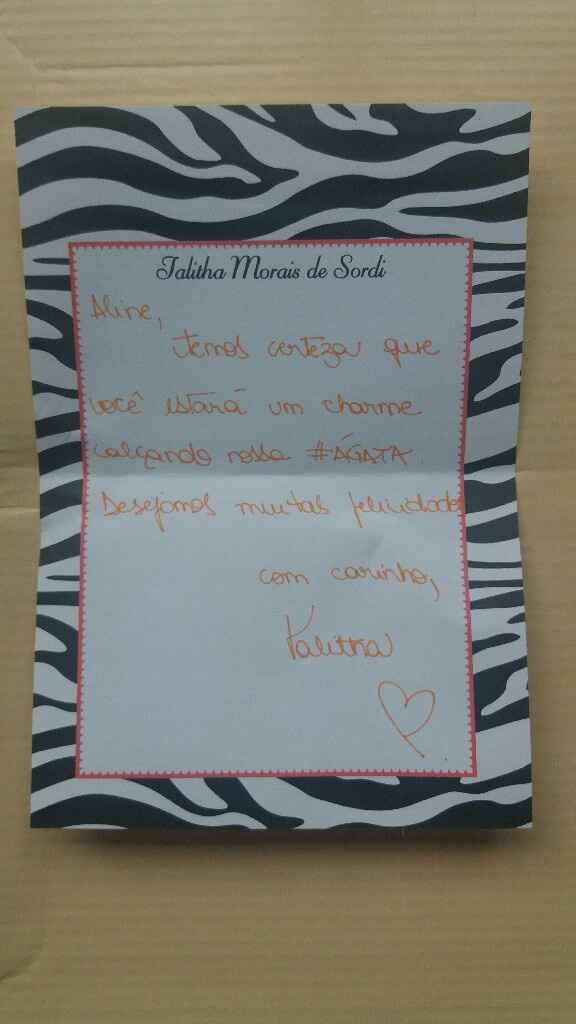 Talitha Morais de Sordi
Aline,
temos certeza que
você estará um charme
calçando nossa #ÁGATA
Desejamos muitas felicidades
com carinho,
Talitha